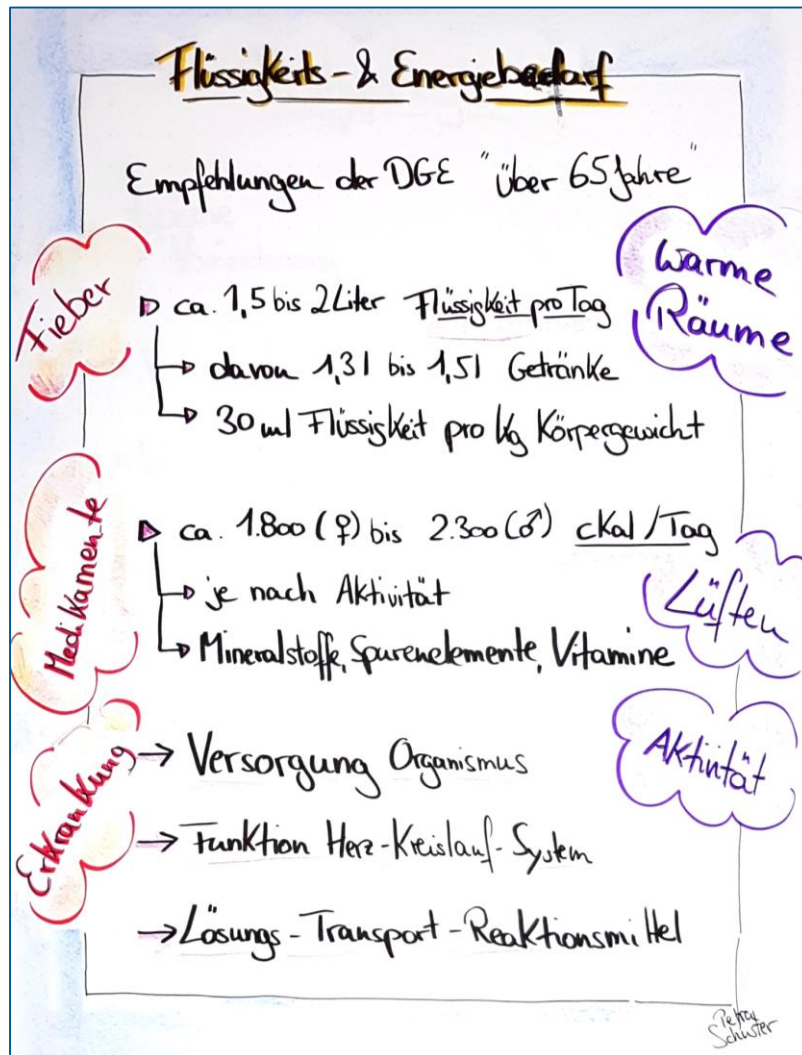 Flüssigkeits - & Energiebedarf
Empfehlungen der DGE "über 65 Jahre"
Fieber
warme
Räume
ca. 1,5 bis 2 Liter Flüssigkeit pro Tag
davon 1,3 l bis 1,5 l Getränke
30 ml Flüssigkeit pro kg Körpergewicht
Medikamente
ca. 1.800 (♀) bis 2.300 (♂) cKal / Tag
je nach Aktivität
Mineralstoffe, Spurenelemente, Vitamine
Lüften
Erkrankung
Aktivität
→ Versorgung Organismus
→ Funktion Herz - Kreislauf - System
→ Lösungs - Transport - Reaktionsmittel
Petra